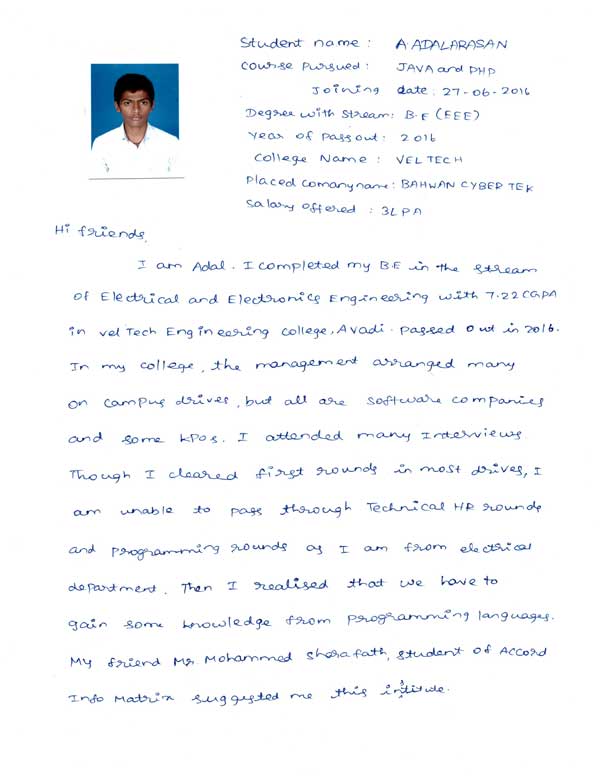 Student name : A ADALARASAN
Course Pursued : JAVA and PHP
Joining date : 27-06-2016
Degree with Stream : B.E (EEE)
Year of Passout : 2016
College Name : VEL TECH
Placed comany name : BAHWAN CYBER TEK
Salary offered : 3LPA
Hi friends,
I am Adal. I completed my B.E in the stream
of Electrical and Electronics Engineering with 7.22 CGPA
in vel Tech Engineering college, Avadi. passed out in 2016.
In my college, the management arranged many
on campus drives, but all are software companies
and some KPOs. I attended many Interviews
Though I cleared first rounds in most drives, I
am unable to pass through Technical HR rounds
and programming rounds as I am from electrical
department. Then I realised that we have to
gain some knowledge from programming languages.
My friend Mr. Mohammed Sharafath, student of Accord
Info Matrix suggusted me this intitude.